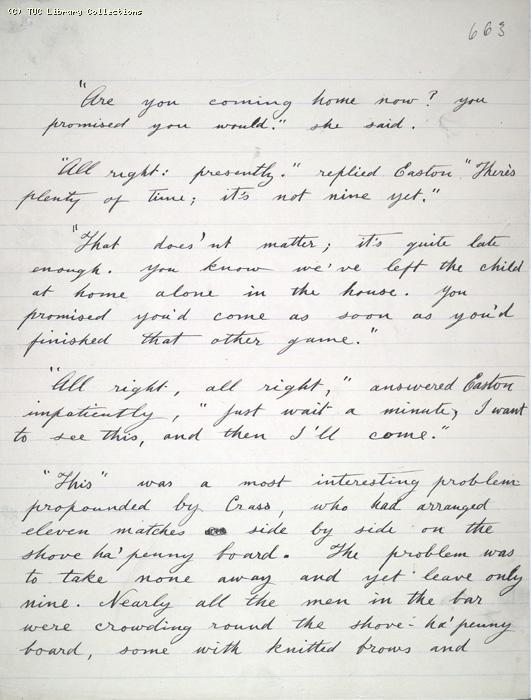 (C) TUC Library Collections
663
"Are you coming home now? you
promised you would." she said.
"All right: presently." replied Easton "There's
plenty of time; it's not nine yet."
"That does'nt matter; it's quite late
enough. You know we've left the child
at home alone in the house. You
promised you'd come as soon as you'd
finished that other game."
"All right, all right," answered Easton
impatiently, "Just wait a minute, I want
to see this, and then I'll come."
"This" was a most interesting problem
propounded by Crass, who had arranged
eleven matches side by side on the
shove ha'penny board. The problem was
to take none away and yet leave only
nine. Nearly all the men in the bar
were crowding round the shove-ha'penny
board, some with knitted brows and